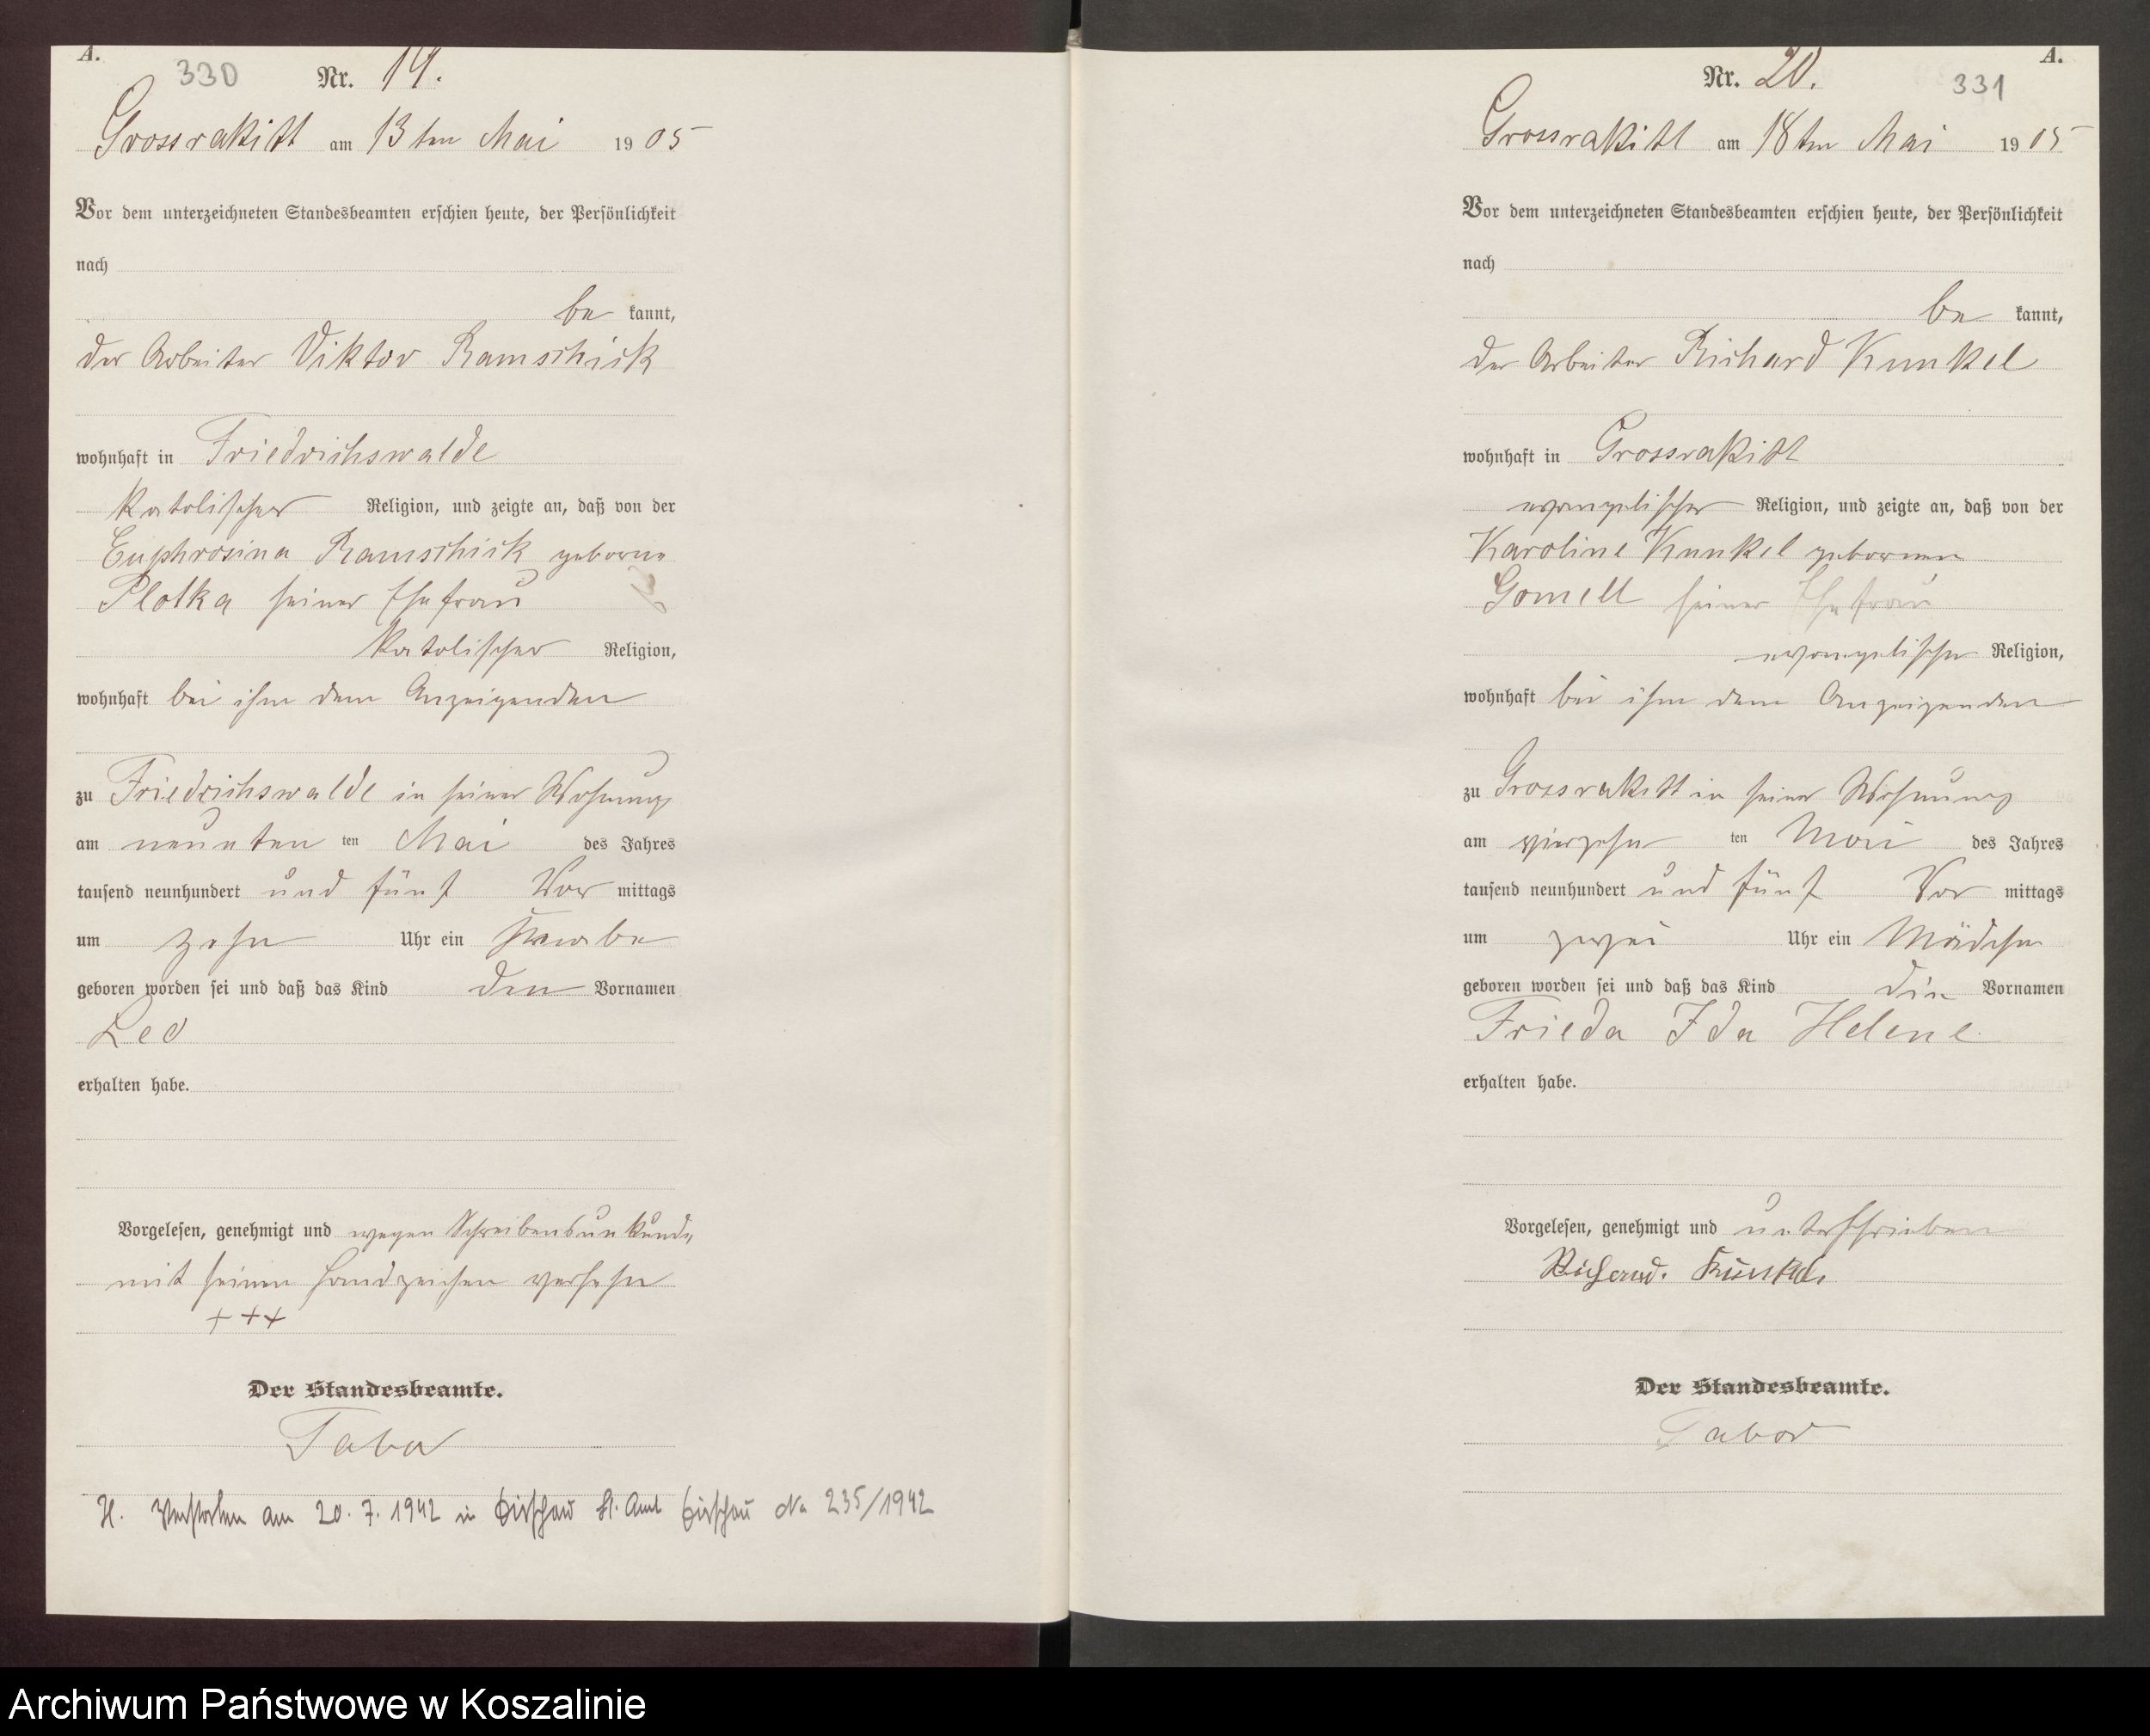 A.
330 Nr. 19.
Grossrakitt am 13ten Mai 1905
Vor dem unterzeichneten Standesbeamten erschien heute, der Persönlichkeit
nach
be kannt,
der Arbeiter Viktor Ramschick
wohnhaft in Friedrichswalde
katolischer Religion, und zeigte an, daß von der
Euphrosina Ramschick geborne
Plotka seiner Ehefrau
katolischer Religion,
wohnhaft bei ihm dem Anzeigenden
zu Friedrichswalde in seiner Wohnung
am neunten ten Mai des Jahres
tausend neunhundert und fünf Vor mittags
um zehn Uhr ein Knabe
geboren worden sei und daß das Kind den Vornamen
Leo
erhalten habe.
Vorgelesen, genehmigt und wegen Schreibensunkunde
mit seinen Handzeichen versehn
+++
Der Standesbeamte.
Tabor
H. Verstorben am 20.7.1942 in Dirschau St. Amt Dirschau No 235/1942
A.
Nr. 20. 331
Grossrakitt am 18ten Mai 1905
Vor dem unterzeichneten Standesbeamten erschien heute, der Persönlichkeit
nach
be kannt,
der Arbeiter Richard Kunkel
wohnhaft in Grossrakitt
evangelischer Religion, und zeigte an, daß von der
Karoline Kunkel gebornen
Gomell seiner Ehefrau
evangelischer Religion,
wohnhaft bei ihm dem Anzeigenden
zu Grossrakitt in seiner Wohnung
am vierzehn ten Mai des Jahres
tausend neunhundert und fünf Vor mittags
um zwei Uhr ein Mädchen
geboren worden sei und daß das Kind die Vornamen
Frieda Ida Helene
erhalten habe.
Vorgelesen, genehmigt und unterschrieben
Richard. Kunkel.
Der Standesbeamte.
Tabor
Archiwum Państwowe w Koszalinie